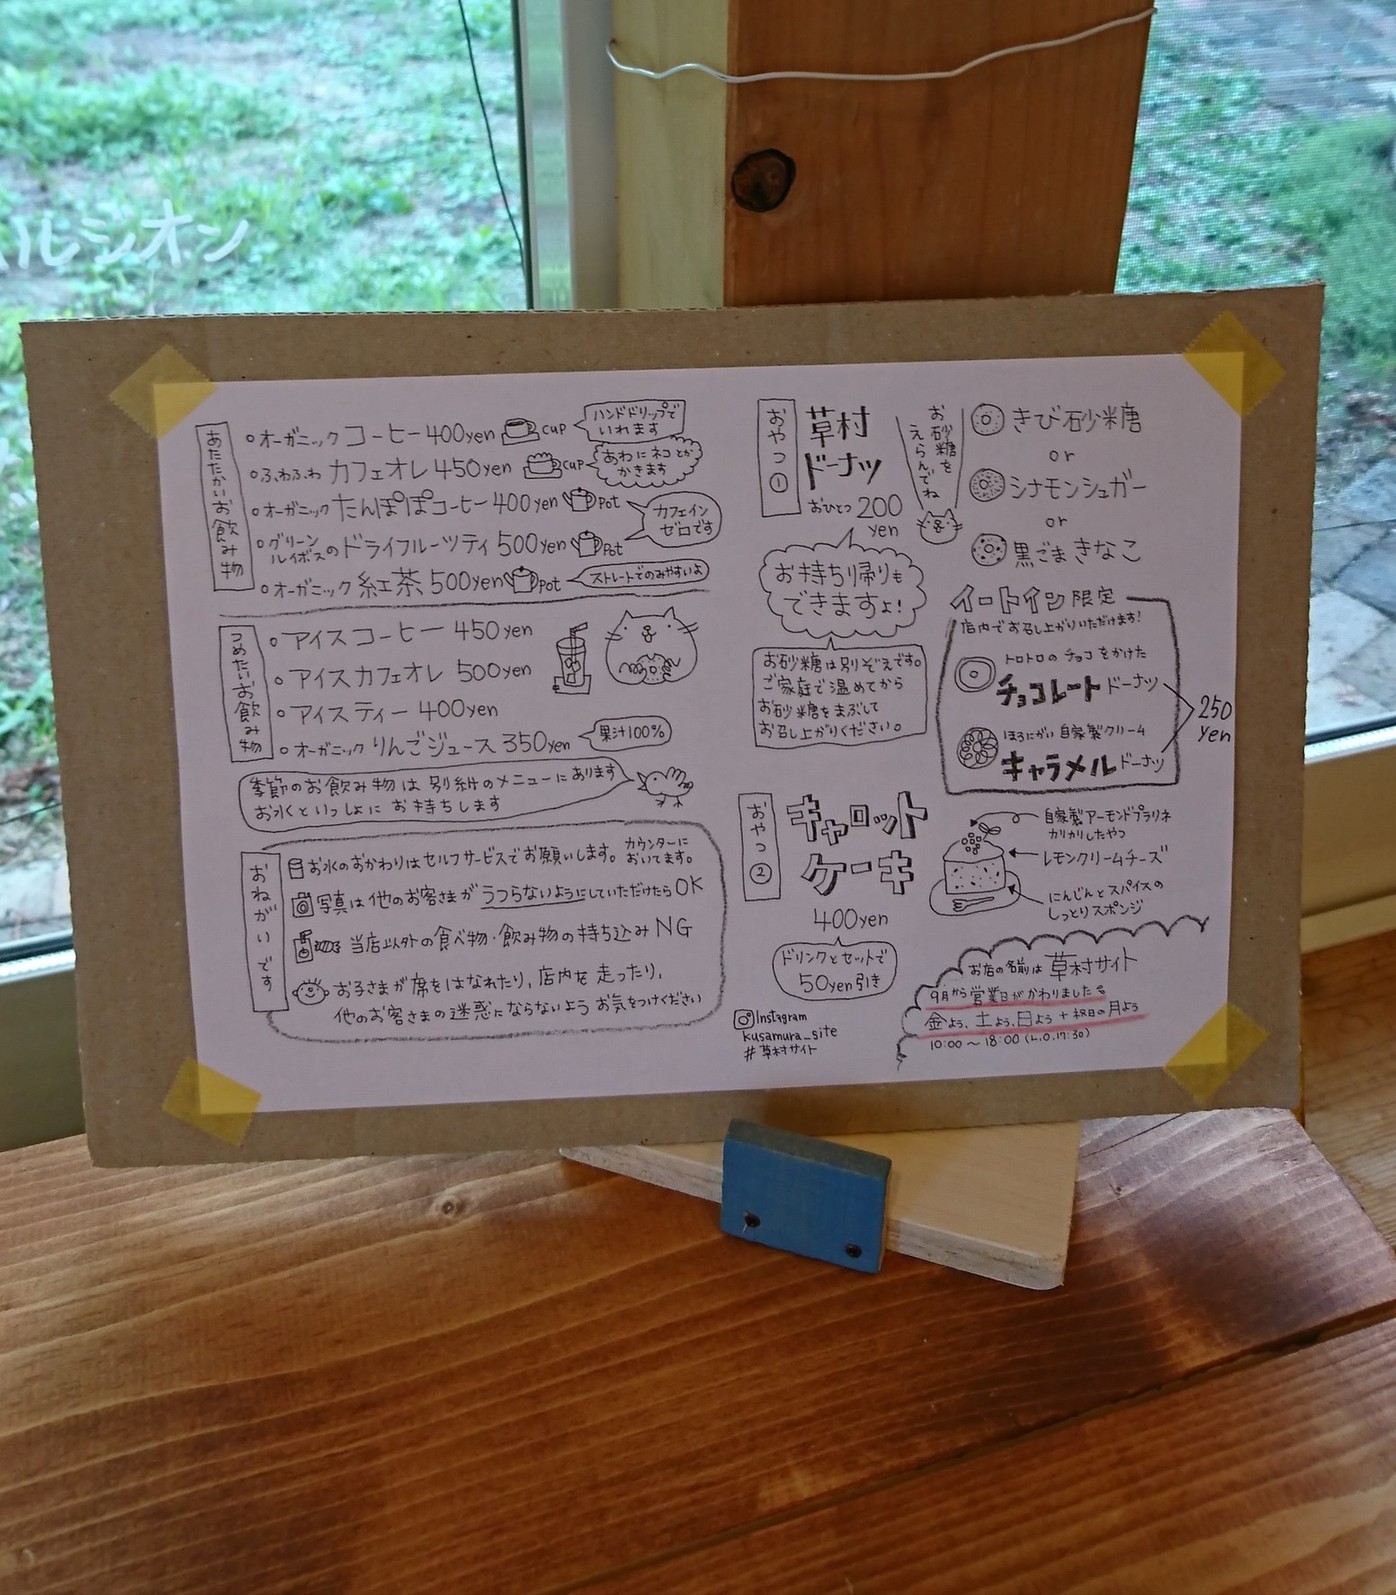 ハルジオン
あたたかいお飲み物
オーガニック コーヒー 400yen cup
ハンドドリップで
いれます
ふわふわ カフェオレ 450yen cup
あわにネコとか
かきます
オーガニック たんぽぽコーヒー 400yen Pot
グリーン
ルイボスのドライフルーツティ 500yen Pot
カフェイン
ゼロです
オーガニック 紅茶 500yen Pot
ストレートでのみやすいよ
つめたいお飲み物
アイスコーヒー 450yen
アイスカフェオレ 500yen
アイスティー 400yen
オーガニック りんごジュース 350yen
果汁100%
季節のお飲み物は 別紙のメニューにあります
お水といっしょに お持ちします
おねがいです
お水のおかわりはセルフサービスでお願いします。カウンターに
おいてます。
写真は他のお客さまが うつらないようにしていただけたら OK
当店以外の食べ物・飲み物の持ち込み NG
お子さまが席をはなれたり、店内を走ったり、
他のお客さまの迷惑にならないよう お気をつけください
おやつ①
草村
ドーナツ
おひとつ 200
yen
お砂糖を
えらんでね
きび砂糖
or
シナモンシュガー
or
黒ごまきなこ
お持ち帰りも
できますよ!
お砂糖は別ぞえです。
ご家庭で温めてから
お砂糖をまぶして
お召し上がりください。
イートイン限定
店内でお召し上がりいただけます!
トロトロの チョコをかけた
チョコレートドーナツ
ほろにがい 自家製クリーム
キャラメルドーナツ
250
yen
おやつ②
キャロット
ケーキ
400yen
ドリンクとセットで
50yen引き
自家製アーモンドプラリネ
カリカリしたやつ
レモンクリームチーズ
にんじんとスパイスの
しっとりスポンジ
Instagram
kusamura_site
#草村サイト
お店の名前は 草村サイト
9月から営業日がかわりました
金よう、土よう、日よう + 祝日の月よう
10:00〜18:00 (L.O.17:30)